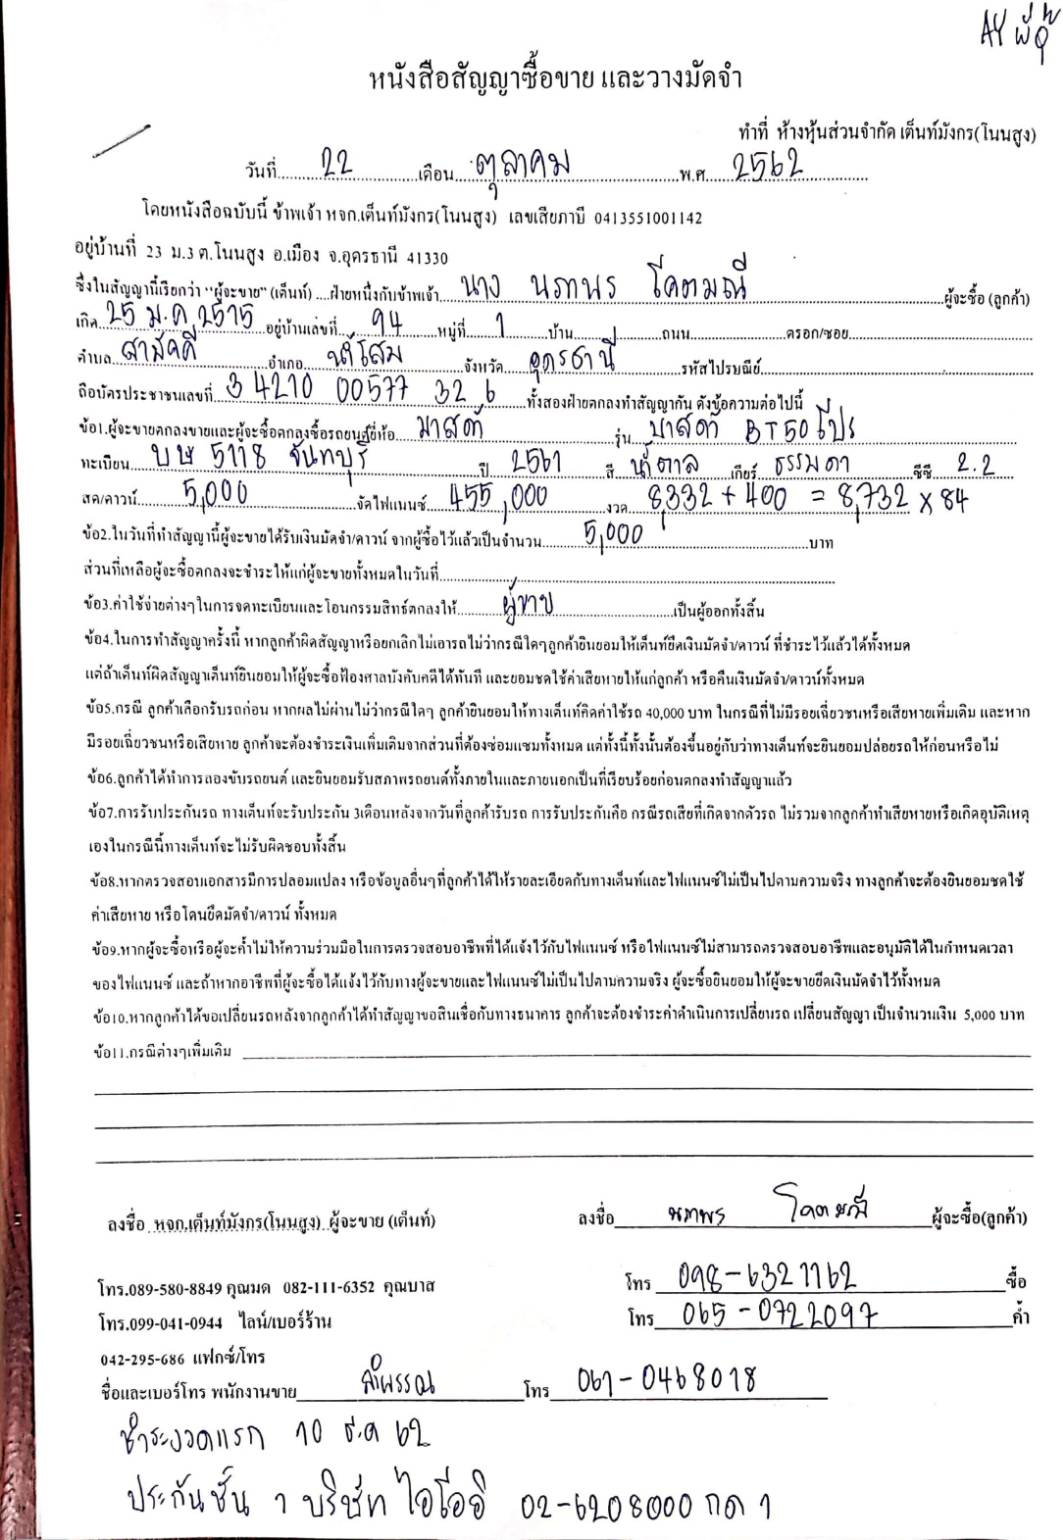 AY
หนังสือสัญญาซื้อขาย และวางมัดจำ
ทำที่ ห้างหุ้นส่วนจำกัด เต็นท์มังกร(โนนสูง)
วันที่ 22 เดือน ตุลาคม พ.ศ 2562
โดยหนังสือฉบับนี้ ข้าพเจ้า หจก.เต็นท์มังกร(โนนสูง) เลขเสียภาษี 0413551001142
อยู่บ้านที่ 23 ม.3 ต.โนนสูง อ.เมือง จ.อุดรธานี 41330
ซึ่งในสัญญานี้เรียกว่า "ผู้จะขาย" (เต็นท์) ....ฝ่ายหนึ่งกับข้าพเจ้า นาง นภาพร โคตมณี ผู้จะซื้อ (ลูกค้า)
เกิด 25 ม.ค 2515 อยู่บ้านเลขที่ 94 หมู่ที่ 1 บ้าน ถนน ตรอก/ซอย
ตำบล สามัคคี อำเภอ น้ำโสม จังหวัด อุดรธานี รหัสไปรษณีย์
ถือบัตรประชาชนเลขที่ 3 4210 00577 32 6 ทั้งสองฝ่ายตกลงทำสัญญากัน ดังข้อความต่อไปนี้
ข้อ1.ผู้จะขายตกลงขายและผู้จะซื้อตกลงซื้อรถยนต์ยี่ห้อ มาสด้า รุ่น มาสด้า BT50 โปร
ทะเบียน บษ 5118 จันทบุรี ปี 2561 สี น้ำตาล เกียร์ ธรรมดา ซีซี 2.2
สด/ดาวน์ 5,000 จัดไฟแนนซ์ 455,000 งวด 8,332 + 400 = 8,732 x 84
ข้อ2.ในวันที่ทำสัญญานี้ผู้จะขายได้รับเงินมัดจำ/ดาวน์ จากผู้ซื้อไว้แล้วเป็นจำนวน 5,000 บาท
ส่วนที่เหลือผู้จะซื้อตกลงจะชำระให้แก่ผู้จะขายทั้งหมดในวันที่
ข้อ3.ค่าใช้จ่ายต่างๆในการจดทะเบียนและโอนกรรมสิทธ์ตกลงให้ ผู้ขาย เป็นผู้ออกทั้งสิ้น
ข้อ4.ในการทำสัญญาครั้งนี้ หากลูกค้าผิดสัญญาหรือยกเลิกไม่เอารถไม่ว่ากรณีใดๆลูกค้ายินยอมให้เต็นท์ยึดเงินมัดจำ/ดาวน์ ที่ชำระไว้แล้วได้ทั้งหมด
แต่ถ้าเต็นท์ผิดสัญญาเต็นท์ยินยอมให้ผู้จะซื้อฟ้องศาลบังคับคดีได้ทันที และยอมชดใช้ค่าเสียหายให้แก่ลูกค้า หรือคืนเงินมัดจำ/ดาวน์ทั้งหมด
ข้อ5.กรณี ลูกค้าเลือกรับรถก่อน หากผลไม่ผ่านไม่ว่ากรณีใดๆ ลูกค้ายินยอมให้ทางเต็นท์คิดค่าใช้รถ 40,000 บาท ในกรณีที่ไม่มีรอยเฉี่ยวชนหรือเสียหายเพิ่มเติม และหาก
มีรอยเฉี่ยวชนหรือเสียหาย ลูกค้าจะต้องชำระเงินเพิ่มเติมจากส่วนที่ต้องซ่อมแซมทั้งหมด แต่ทั้งนี้ทั้งนั้นต้องขึ้นอยู่กับว่าทางเต็นท์จะยินยอมปล่อยรถให้ก่อนหรือไม่
ข้อ6.ลูกค้าได้ทำการลองขับรถยนต์ และยินยอมรับสภาพรถยนต์ทั้งภายในและภายนอกเป็นที่เรียบร้อยก่อนตกลงทำสัญญาแล้ว
ข้อ7.การรับประกันรถ ทางเต็นท์จะรับประกัน 3เดือนหลังจากวันที่ลูกค้ารับรถ การรับประกันคือ กรณีรถเสียที่เกิดจากตัวรถ ไม่รวมจากลูกค้าทำเสียหายหรือเกิดอุบัติเหตุ
เองในกรณีนี้ทางเต็นท์จะไม่รับผิดชอบทั้งสิ้น
ข้อ8.หากตรวจสอบเอกสารมีการปลอมแปลง หรือข้อมูลอื่นๆที่ลูกค้าได้ให้รายละเอียดกับทางเต็นท์และไฟแนนซ์ไม่เป็นไปตามความจริง ทางลูกค้าจะต้องยินยอมชดใช้
ค่าเสียหาย หรือโดนยึดมัดจำ/ดาวน์ ทั้งหมด
ข้อ9.หากผู้จะซื้อหรือผู้จะค้ำไม่ให้ความร่วมมือในการตรวจสอบอาชีพที่ได้แจ้งไว้กับไฟแนนซ์ หรือไฟแนนซ์ไม่สามารถตรวจสอบอาชีพและอนุมัติได้ในกำหนดเวลา
ของไฟแนนซ์ และถ้าหากอาชีพที่ผู้จะซื้อได้แจ้งไว้กับทางผู้จะขายและไฟแนนซ์ไม่เป็นไปตามความจริง ผู้จะซื้อยินยอมให้ผู้จะขายยึดเงินมัดจำไว้ทั้งหมด
ข้อ10.หากลูกค้าได้ขอเปลี่ยนรถหลังจากลูกค้าได้ทำสัญญาขอสินเชื่อกับทางธนาคาร ลูกค้าจะต้องชำระค่าดำเนินการเปลี่ยนรถ เปลี่ยนสัญญา เป็นจำนวนเงิน 5,000 บาท
ข้อ11.กรณีต่างๆเพิ่มเติม
ลงชื่อ หจก.เต็นท์มังกร(โนนสูง) ผู้จะขาย (เต็นท์) ลงชื่อ นภาพร โคตมณี ผู้จะซื้อ(ลูกค้า)
โทร.089-580-8849 คุณมด 082-111-6352 คุณบาส โทร 098-6321162 ซื้อ
โทร.099-041-0944 ไลน์/เบอร์ร้าน โทร 065-0722097 ค้ำ
042-295-686 แฟกซ์/โทร
ชื่อและเบอร์โทร พนักงานขาย ลำพรรณ โทร 061-0468018
ชำระงวดแรก 10 ธ.ค 62
ประกันชั้น 1 บริษัท ไอโออิ 02-6208000 กด 1